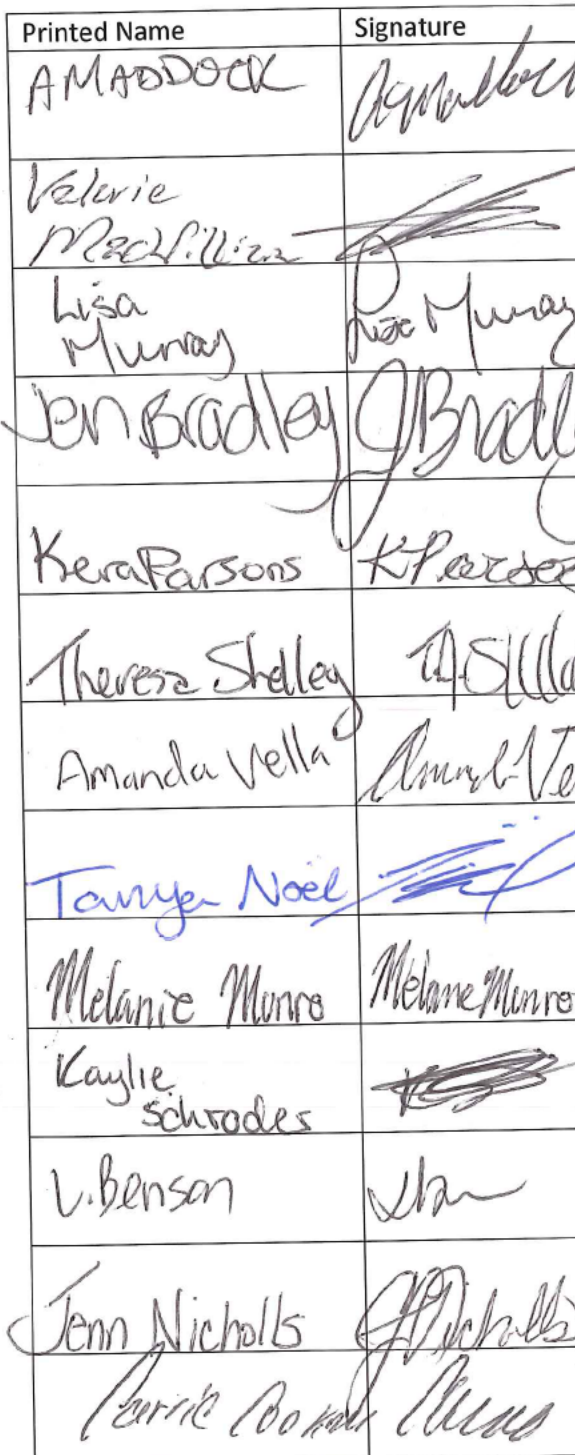 Printed Name Signature
A MADDOCK
Valerie
MacWilliam
Lisa
Murray Lisa Murray
Jen Bradley JBradley
Kera Parsons K Parsons
Theresa Shelley
Amanda Vella
Tanya Noël
Melanie Munro Melanie Munro
Kaylie
Schroder
V. Benson
Jenn Nicholls JNicholls